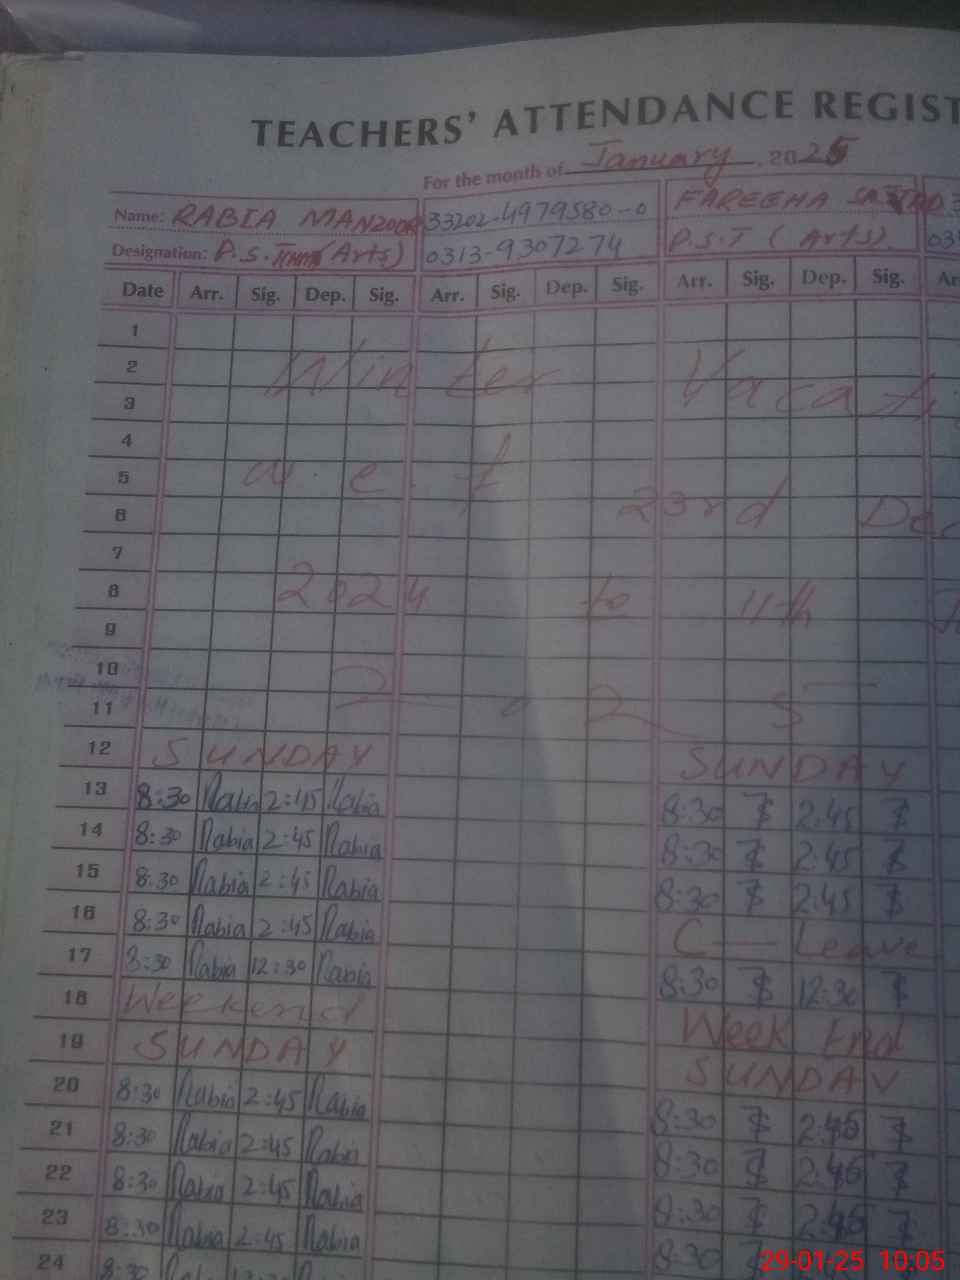 TEACHERS' ATTENDANCE REGIST
For the month of January, 2025
Name: RABIA MANZOOR 33202-4979580-0 FAREEHA
Designation: P.S.T (Arts) 0313-9307274 P.S.T (Arts) 03
Date Arr. Sig. Dep. Sig. Arr. Sig. Dep. Sig. Arr. Sig. Dep. Sig. Arr
1
2 Winter Vacati
3
4
5 w.e.f
6 23rd Dec
7
8 2024 to 11th
9
10
11
12 SUNDAY SUNDAY
13 8:30 Rabia 2:45 Rabia 8:30 2:45
14 8:30 Rabia 2:45 Rabia 8:30 2:45
15 8:30 Rabia 2:45 Rabia 8:30 2:45
16 8:30 Rabia 2:45 Rabia C — Leave
17 8:30 Rabia 12:30 Rabia 8:30 12:30
18 Weekend Week End
19 SUNDAY SUNDAY
20 8:30 Rabia 2:45 Rabia 8:30 2:45
21 8:30 Rabia 2:45 Rabia 8:30 2:45
22 8:30 Rabia 2:45 Rabia 8:30 2:45
23 8:30 Rabia 2:45 Rabia 8:30
24 8:30
29-01-25 10:05